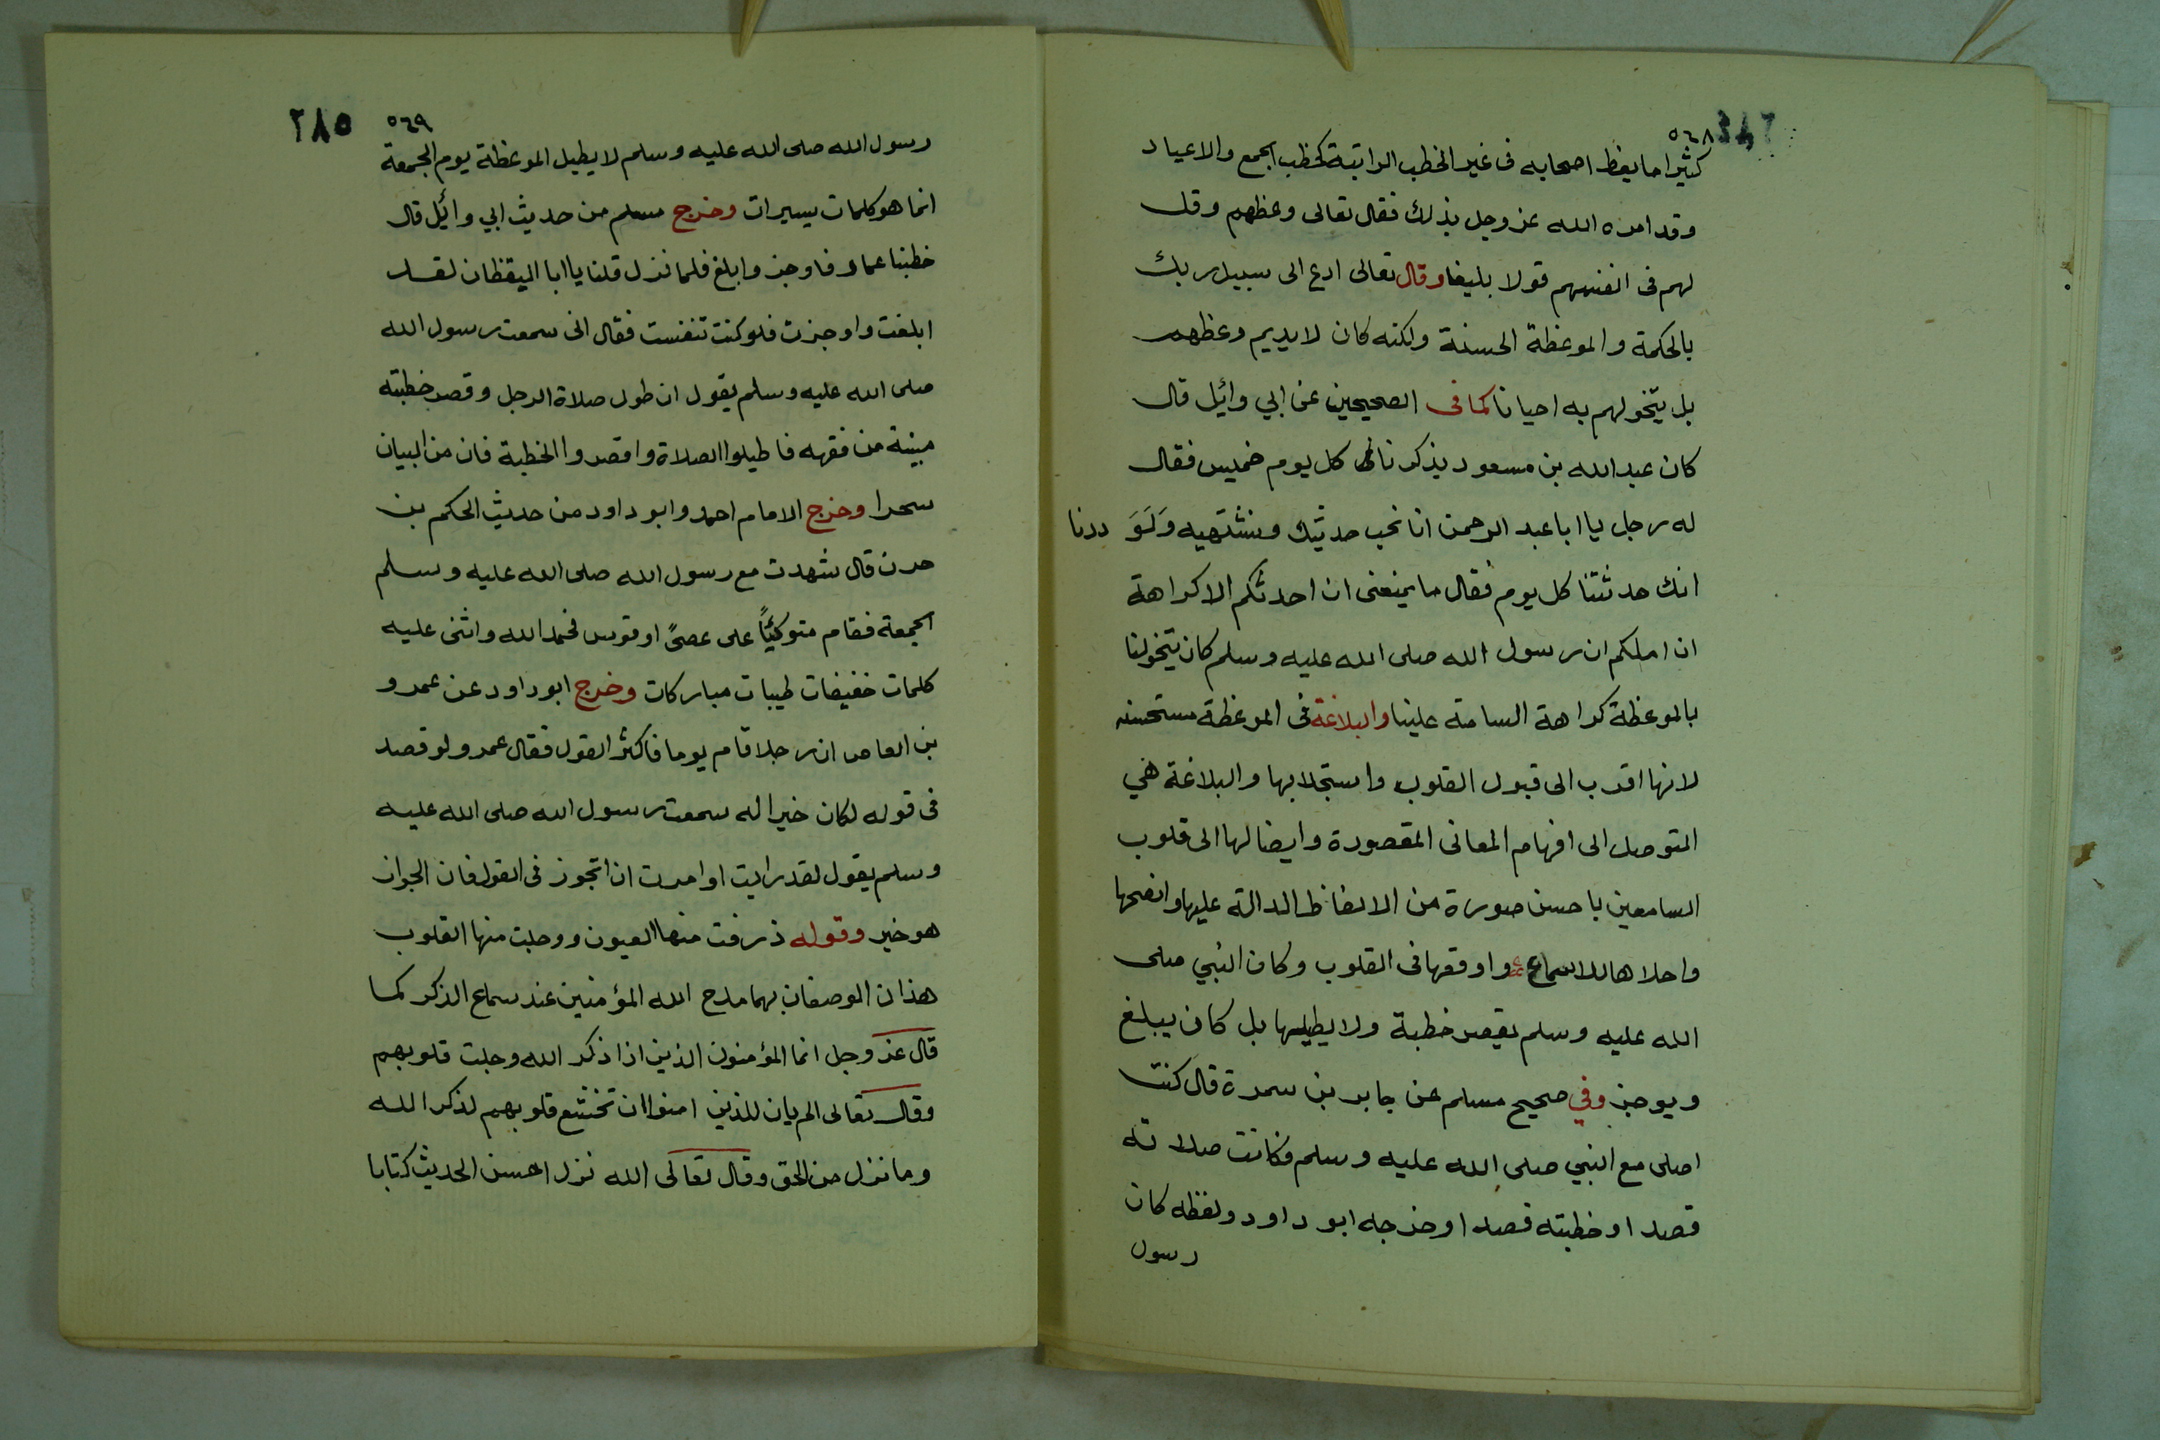 ٥٦٨
كثيرا ما يعظ اصحابه فى غير الخطب الراتبة كخطب الجمع والاعياد
وقد امره الله عز وجل بذلك فقال تعالى وعظهم وقل
لهم فى انفسهم قولا بليغا وقال تعالى ادع الى سبيل ربك
بالحكمة والموعظة الحسنة ولكنه كان لا يديم وعظهم
بل يتخولهم به احيانا كما فى الصحيحين عن ابي وائل قال
كان عبد الله بن مسعود يذكرنا كل يوم خميس فقال
له رجل يا ابا عبد الرحمن انا نحب حديثك ونشتهيه وَلَوَ ددنا
انك حدثتنا كل يوم فقال ما يمنعنى ان احدثكم الا كراهة
ان املكم ان رسول الله صلى الله عليه وسلم كان يتخولنا
بالموعظة كراهة السامة علينا والبلاغة فى الموعظة مستحسنه
لانها اقرب الى قبول القلوب واستجلابها والبلاغة هي
التوصل الى افهام المعانى المقصودة وايصالها الى قلوب
السامعين باحسن صورة من الالفاظ الدالة عليها وافصحها
واحلاها للاسماع واوقعها فى القلوب وكان النبي صلى
الله عليه وسلم يقصر خطبة ولا يطيلها بل كان يبلغ
ويوجز وفي صحيح مسلم عن جابر بن سمرة قال كنت
اصلى مع النبي صلى الله عليه وسلم فكانت صلاته
قصدا وخطبته قصدا وخرجه ابو داود ولفظه كان
رسول
٥٦٩ ٢٨٥
رسول الله صلى الله عليه وسلم لا يطيل الموعظة يوم الجمعة
انما هو كلمات يسيرات وخرج مسلم من حديث ابي وائل قال
خطبنا عمار فاوجز وابلغ فلما نزل قلنا يا ابا اليقظان لقد
ابلغت واوجزت فلو كنت تنفست فقال انى سمعت رسول الله
صلى الله عليه وسلم يقول ان طول صلاة الرجل وقصر خطبته
مبينة من فقهه فاطيلوا الصلاة واقصروا الخطبة فان من البيان
سحرا وخرج الامام احمد وابو داود من حديث الحكم بن
حرن قال شهدت مع رسول الله صلى الله عليه وسلم
الجمعة فقام متوكئًا على عصىً او قوس فحمد الله واثنى عليه
كلمات خفيفات طيبات مباركات وخرج ابو داود عن عمرو
بن العاص ان رجلا قام يوما فاكثر القول فقال عمرو لو قصد
فى قوله لكان خيرا له سمعت رسول الله صلى الله عليه
وسلم يقول لقد رايت او امرت ان اتجوز فى القول فان الجواز
هو خير وقوله ذرفت منها العيون ووجلت منها القلوب
هذان الوصفان بهما مدح الله المؤمنين عند سماع الذكر كما
قال عز وجل انما المؤمنون الذين اذا ذكر الله وجلت قلوبهم
وقال تعالى الم يان للذين امنوا ان تخشع قلوبهم لذكر الله
وما نزل من الحق وقال تعالى الله نزل احسن الحديث كتابا